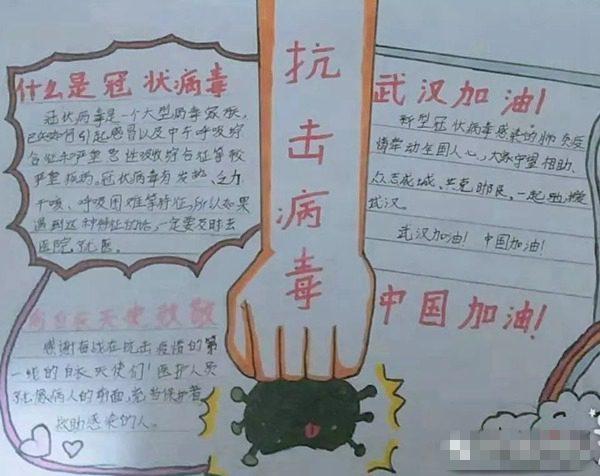 什么是冠状病毒
冠状病毒是一个大型病毒家族,
已知可引起感冒以及中东呼吸综
合征和严重急性呼吸综合征等较
严重疾病。冠状病毒有发热、乏力
干咳、呼吸困难等特征,所以如果
遇到这种特征的话,一定要及时去
医院就医。
向白衣天使致敬
感谢奋战在抗击疫情的第
一线的白衣天使们!医护人员
病人的前面,
救助感染的人。
抗击病毒
武汉加油!
新型冠状病毒感染的肺炎疫
情牵动全国人心,大家守望相助、
众志成城、共克时艰,一起
武汉。
武汉加油! 中国加油!
中国加油!